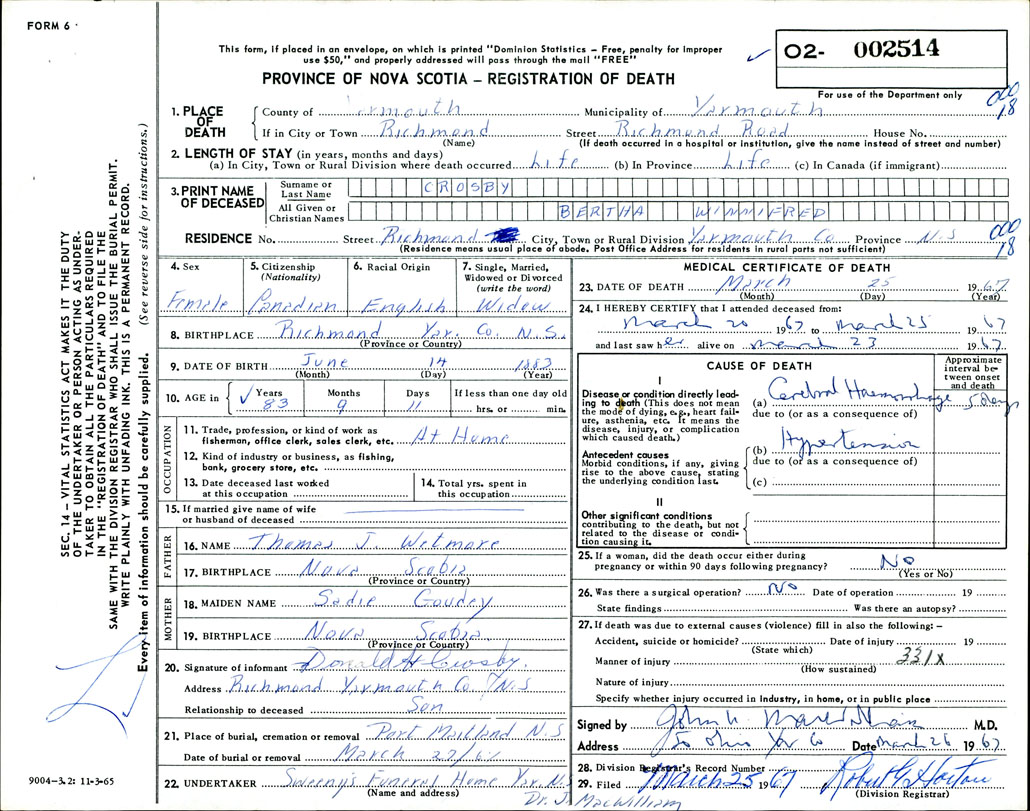 FORM 6
This form, if placed in an envelope, on which is printed "Dominion Statistics – Free, penalty for improper
use $50," and properly addressed will pass through the mail "FREE"
O2- 002514
PROVINCE OF NOVA SCOTIA – REGISTRATION OF DEATH
For use of the Department only
000
18
1. PLACE OF DEATH
County of Yarmouth Municipality of Yarmouth
If in City or Town Richmond Street Richmond Road House No.
(Name) (If death occurred in a hospital or institution, give the name instead of street and number)
2. LENGTH OF STAY (in years, months and days)
(a) In City, Town or Rural Division where death occurred Life (b) In Province Life (c) In Canada (if immigrant)
3. PRINT NAME OF DECEASED
Surname or Last Name CROSBY
All Given or Christian Names BERTHA WINNIFRED
RESIDENCE No. Street Richmond City, Town or Rural Division Yarmouth Co. Province N.S
(Residence means usual place of abode. Post Office Address for residents in rural parts not sufficient)
000
18
4. Sex
Female
5. Citizenship
(Nationality)
Canadian
6. Racial Origin
English
7. Single, Married,
Widowed or Divorced
(write the word)
Widow
8. BIRTHPLACE Richmond Yar. Co. N.S.
(Province or Country)
9. DATE OF BIRTH June 14 1883
(Month) (Day) (Year)
10. AGE in Years 83 Months 9 Days 11 If less than one day old
hrs. or min.
OCCUPATION
11. Trade, profession, or kind of work as
fisherman, office clerk, sales clerk, etc. At Home
12. Kind of industry or business, as fishing,
bank, grocery store, etc.
13. Date deceased last worked
at this occupation
14. Total yrs. spent in
this occupation
15. If married give name of wife
or husband of deceased
FATHER
16. NAME Thomas J. Wetmore
17. BIRTHPLACE Nova Scotia
(Province or Country)
MOTHER
18. MAIDEN NAME Sadie Goudey
19. BIRTHPLACE Nova Scotia
(Province or Country)
20. Signature of informant Donald H Crosby.
Address Richmond Yarmouth Co. N.S
Relationship to deceased Son
21. Place of burial, cremation or removal Port Maitland N.S
Date of burial or removal March 27/67
22. UNDERTAKER Sweeny's Funeral Home Yar. N.S
(Name and address)
Dr. J. MacWilliam
MEDICAL CERTIFICATE OF DEATH
23. DATE OF DEATH March 25 1967
(Month) (Day) (Year)
24. I HEREBY CERTIFY that I attended deceased from:
March 20 1967 to March 25 1967
and last saw her alive on March 23 1967
CAUSE OF DEATH
Approximate
interval be-
tween onset
and death
I
Disease or condition directly lead-
ing to death (This does not mean
the mode of dying, e.g., heart fail-
ure, asthenia, etc. It means the
disease, injury, or complication
which caused death.)
(a) Cerebral Haemorrhage 5 days
due to (or as a consequence of)
Antecedent causes
Morbid conditions, if any, giving
rise to the above cause, stating
the underlying condition last.
(b) Hypertension
due to (or as a consequence of)
(c)
II
Other significant conditions
contributing to the death, but not
related to the disease or condi-
tion causing it.
25. If a woman, did the death occur either during
pregnancy or within 90 days following pregnancy? No
(Yes or No)
26. Was there a surgical operation? No Date of operation 19
State findings Was there an autopsy?
27. If death was due to external causes (violence) fill in also the following: –
Accident, suicide or homicide? Date of injury 19
(State which)
Manner of injury 331X
(How sustained)
Nature of injury
Specify whether injury occurred in Industry, in home, or in public place
Signed by John M.D.
Address Yar Co Date March 26 1967
28. Division Registrar's Record Number
29. Filed March 25 1967 Robert Horton
(Division Registrar)
SEC. 14 – VITAL STATISTICS ACT MAKES IT THE DUTY
OF THE UNDERTAKER OR PERSON ACTING AS UNDER-
TAKER TO OBTAIN ALL THE PARTICULARS REQUIRED
IN THE "REGISTRATION OF DEATH" AND TO FILE THE
SAME WITH THE DIVISION REGISTRAR WHO SHALL ISSUE THE BURIAL PERMIT.
WRITE PLAINLY WITH UNFADING INK. THIS IS A PERMANENT RECORD.
Every item of information should be carefully supplied. (See reverse side for instructions.)
9004-3.2: 11-3-65